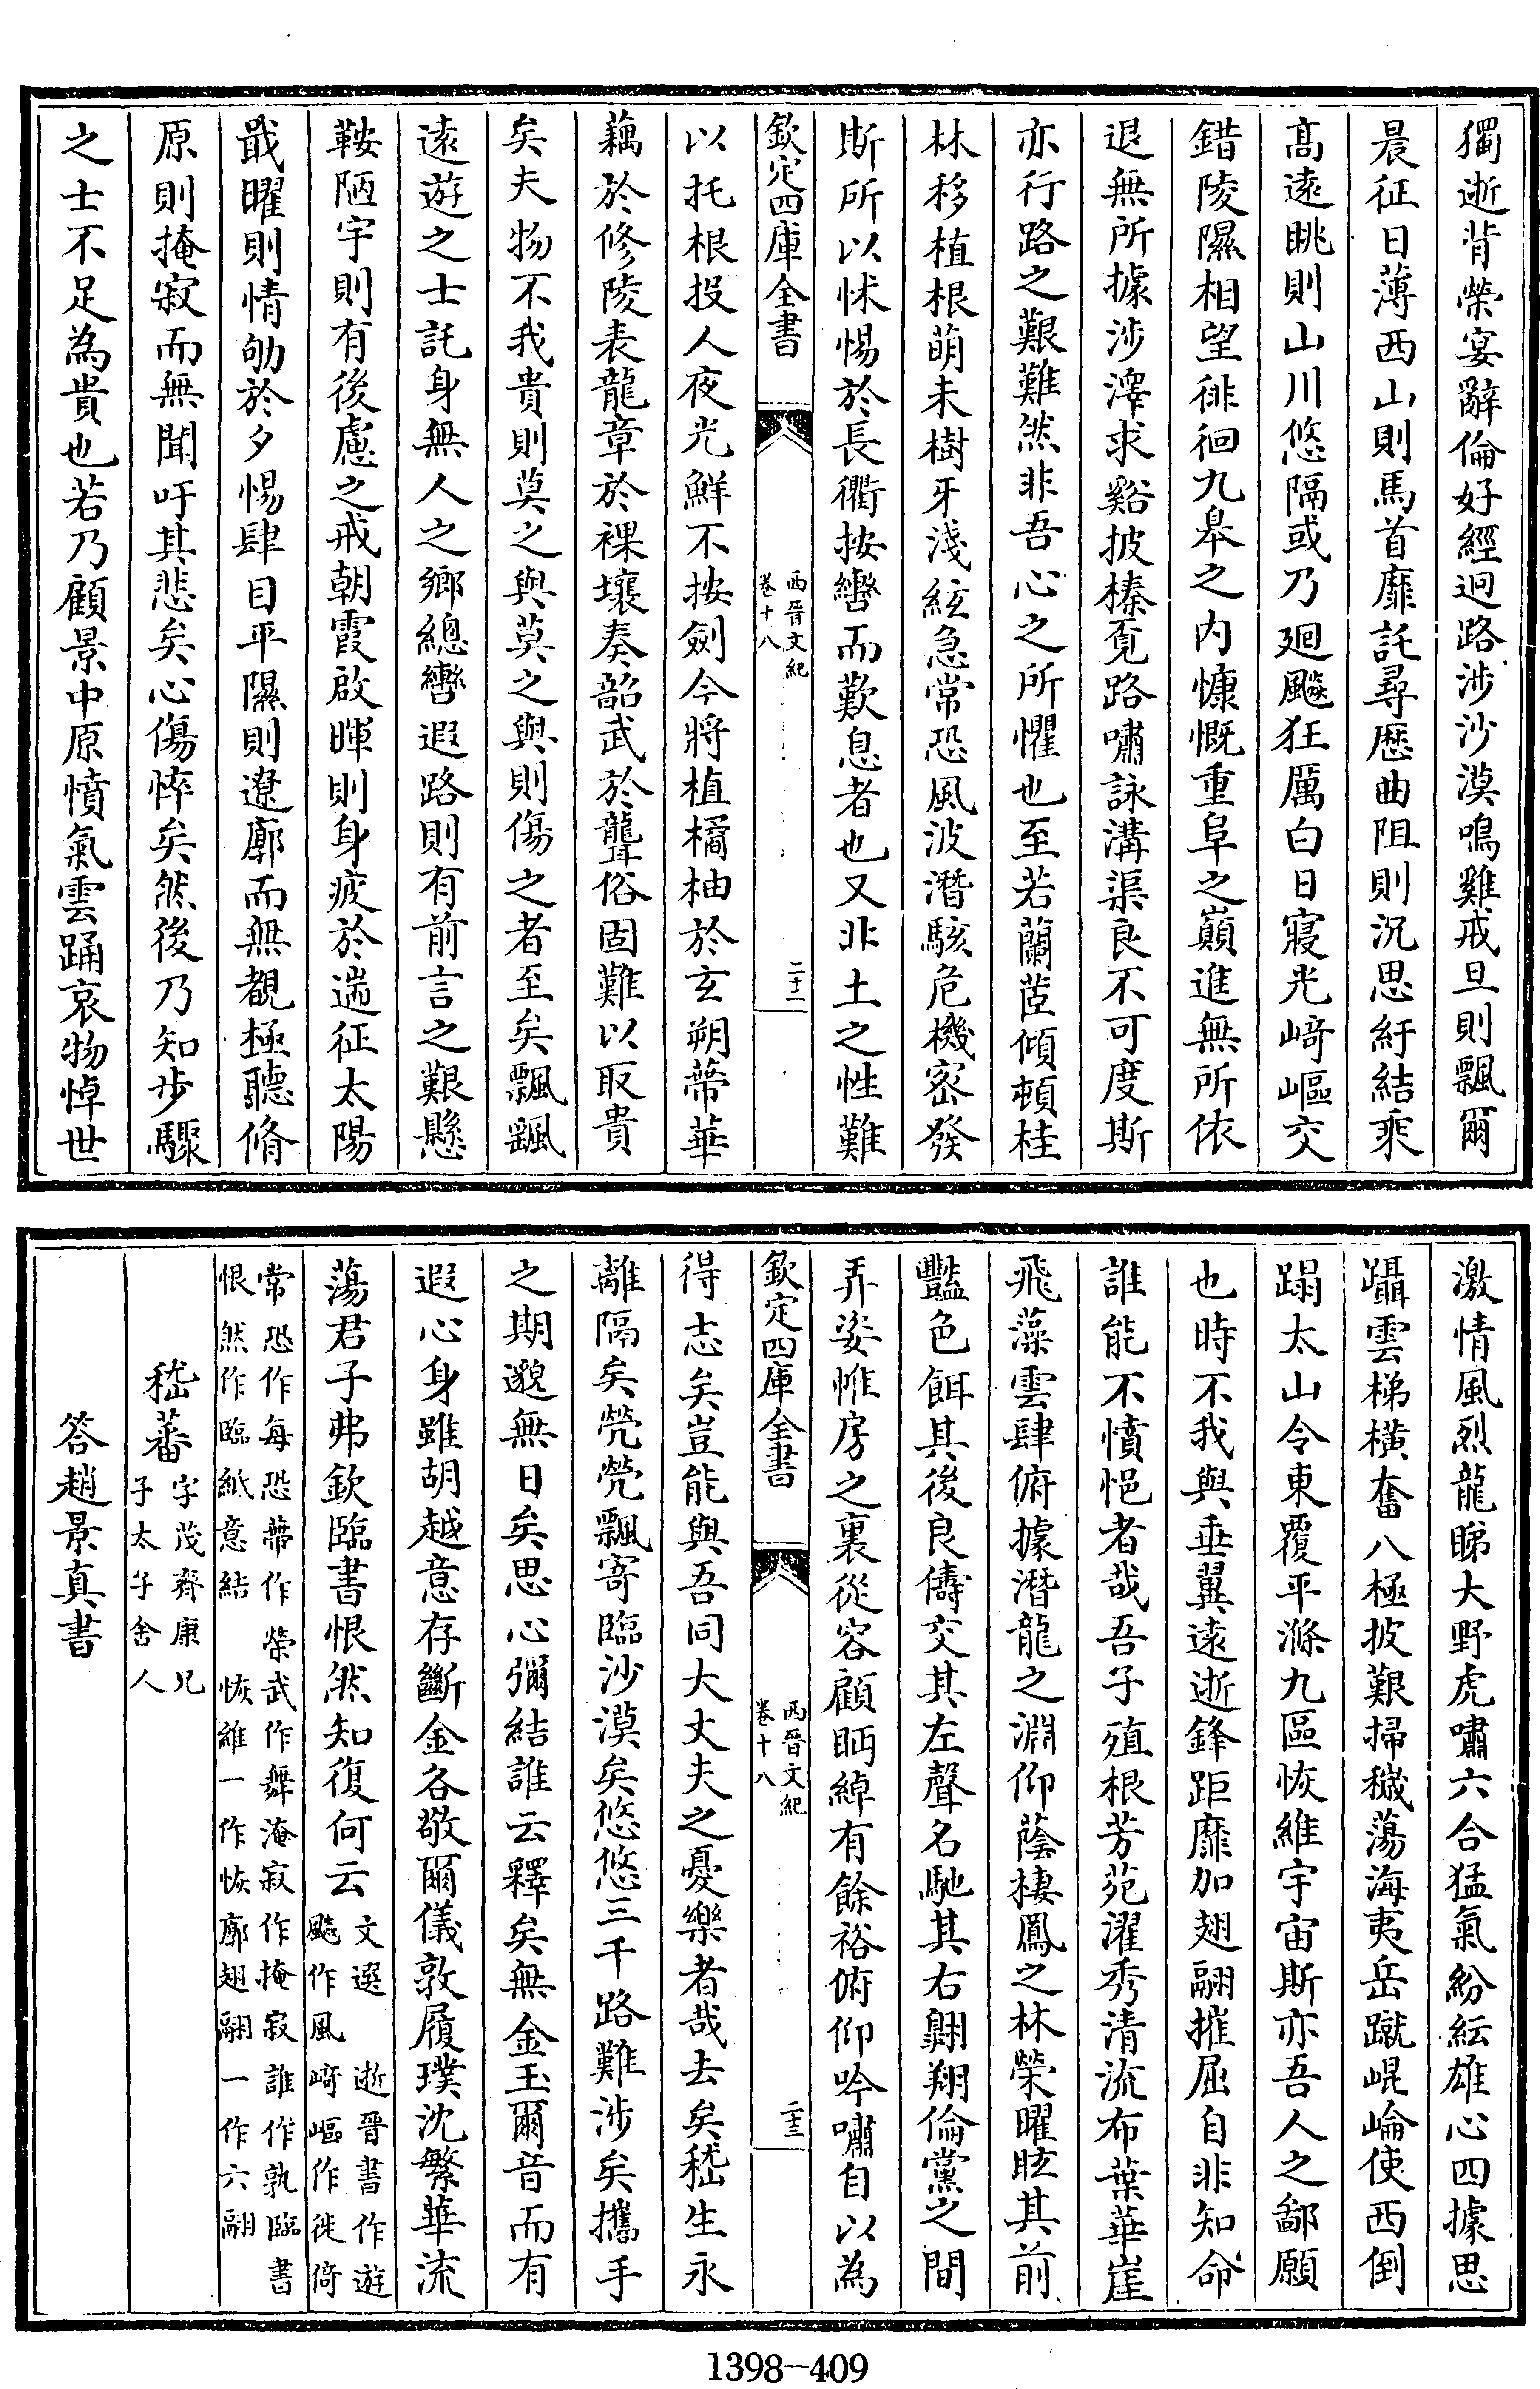 獨逝背榮宴辭倫好經迥路涉沙漠鳴雞戒旦則飄爾
晨征日薄西山則馬首靡託尋歷曲阻則沉思紆結乘
髙逺眺則山川悠隔或乃廻飈狂厲白日寢光﨑嶇交
錯陵隰相望徘徊九臯之内慷慨重阜之巔進無所依
退無所據涉澤求谿披榛覔路嘯詠溝渠良不可度斯
亦行路之艱難然非吾心之所懼也至若蘭茝傾頓桂
林移植根萌未樹牙淺絃急常恐風波潛駭危機密發
斯所以怵惕於長衢按轡而歎息者也又非土之性難
欽定四庫全書
西晉文紀
卷十八
二十二
以托根投人夜光鮮不按劍今將植橘柚於玄朔蔕華
藕於修陵表龍章於裸壤奏韶武於聾俗固難以取貴
矣夫物不我貴則莫之與莫之與則傷之者至矣飄颻
逺遊之士託身無人之鄉總轡遐路則有前言之艱懸
鞍陋宇則有後慮之戒朝霞啟暉則身疲於遄征太陽
戢曜則情劬於夕惕肆目平隰則遼廓而無覩極聽脩
原則掩寂而無聞吁其悲矣心傷悴矣然後乃知步驟
之士不足為貴也若乃顧景中原憤氣雲踊哀物悼世
激情風烈龍睇大野虎嘯六合猛氣紛紜雄心四據思
躡雲梯橫奮八極披艱掃穢蕩海夷岳蹴崐崘使西倒
蹋太山令東覆平滌九區恢維宇宙斯亦吾人之鄙願
也時不我與垂翼逺逝鋒距靡加翅翮摧屈自非知命
誰能不憤悒者哉吾子殖根芳苑濯秀清流布葉華崖
飛藻雲肆俯據潛龍之淵仰蔭棲鳳之林榮曜眩其前
豔色餌其後良儔交其左聲名馳其右翺翔倫黨之間
弄姿帷房之裏從容顧眄綽有餘裕俯仰吟嘯自以為
欽定四庫全書
西晉文紀
卷十八
二十三
得志矣豈能與吾同大丈夫之憂樂者哉去矣嵇生永
離隔矣煢煢飄寄臨沙漠矣悠悠三千路難涉矣攜手
之期邈無日矣思心彌結誰云釋矣無金玉爾音而有
遐心身雖胡越意存斷金各敬爾儀敦履璞沈繁華流
蕩君子弗欽臨書恨然知復何云
文選　逝晉書作遊
飈作風　﨑嶇作徙倚
常恐作每恐蔕作榮武作舞淹寂作掩寂誰作孰臨書
恨然作臨紙意結　恢維一作恢廓翅翮一作六翮
嵇蕃
字茂齊康兄
子太子舍人
答趙景真書
1398-409